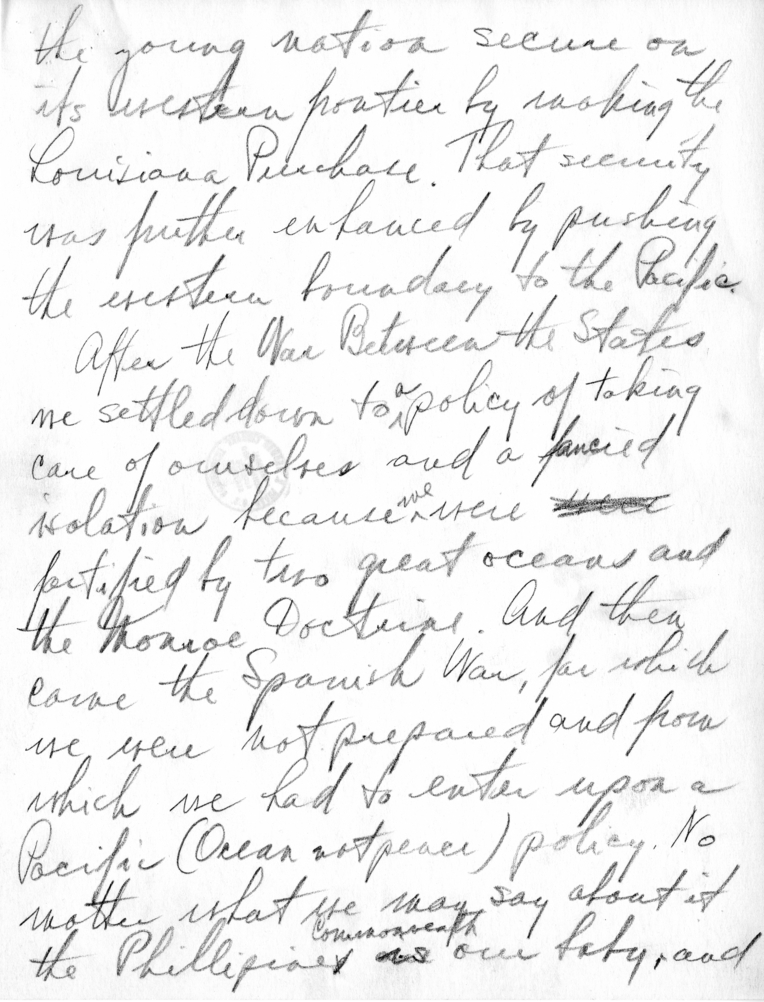 the young nation secure on
its western frontier by making the
Louisiana Purchase. That security
was further enhanced by pushing
the western boundary to the Pacific.
After the War Between the States
we settled down to a policy of taking
care of ourselves and a fancied
isolation because we were
fortified by two great oceans and
the Monroe Doctrine. And then
came the Spanish War, for which
we were not prepared and from
which we had to enter upon a
Pacific (Ocean not peace) policy. No
matter what we may say about it
the Phillipines Commonwealth is our baby, and